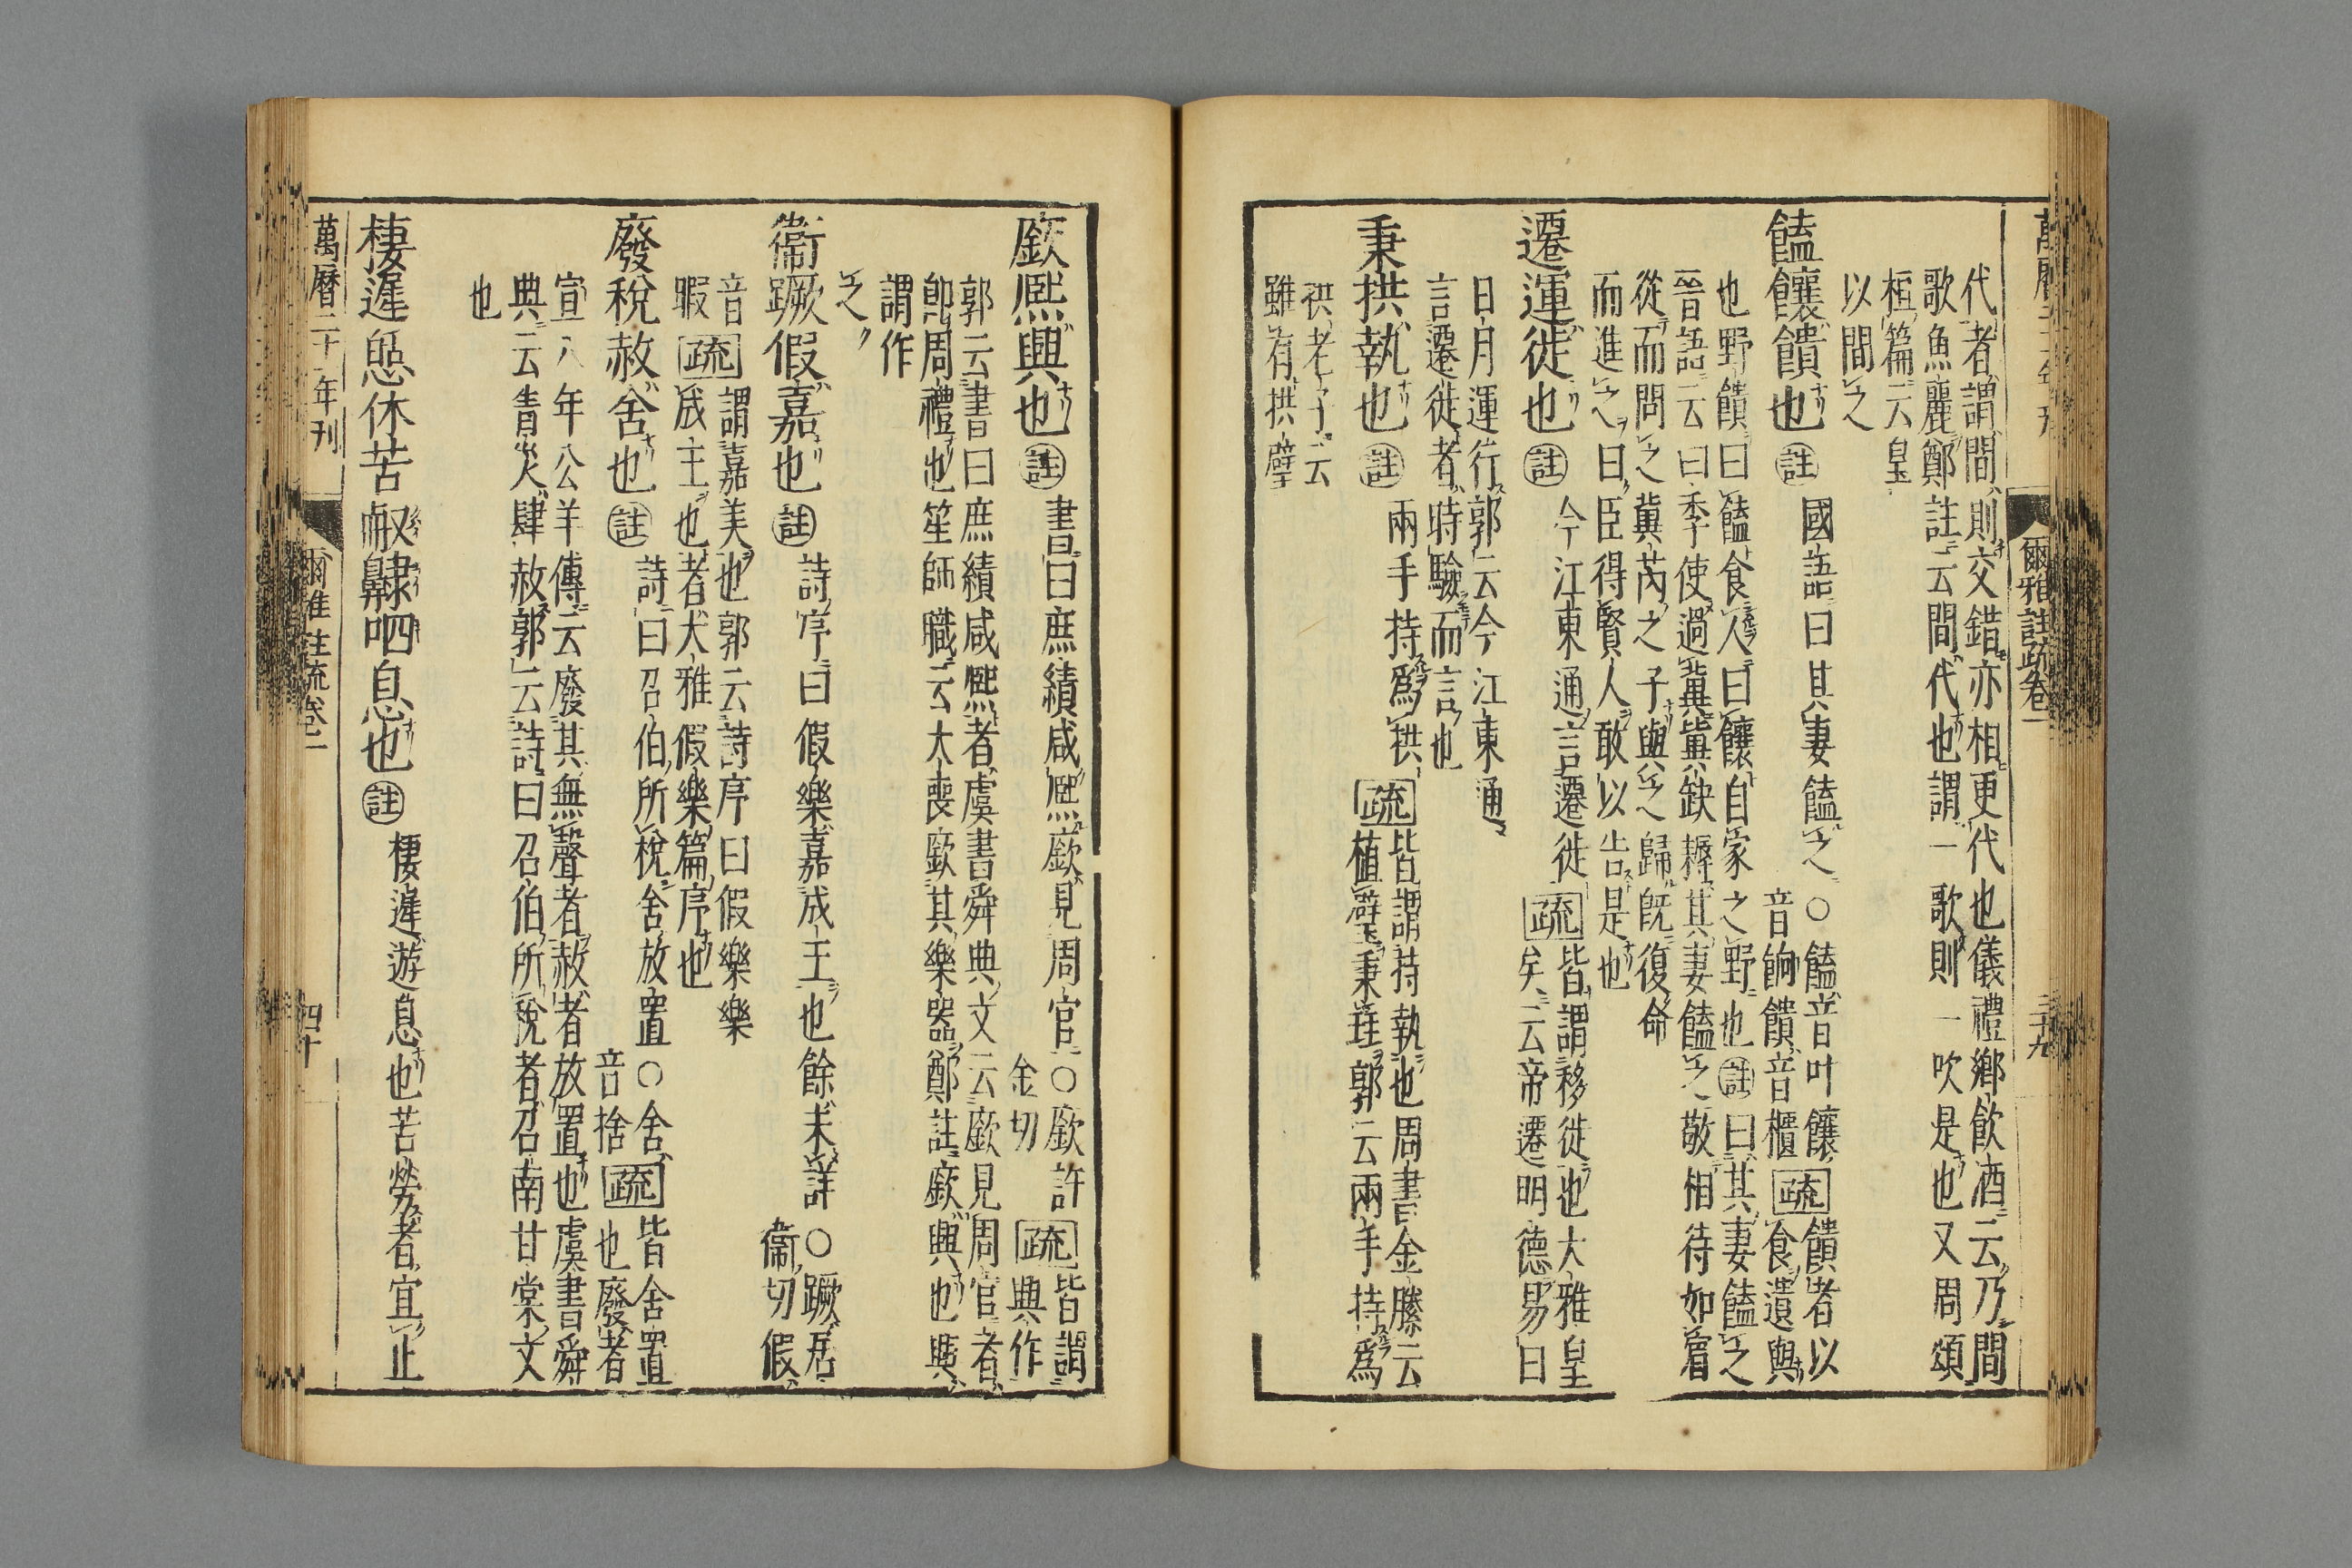 代者謂間則交錯亦相更代也儀禮鄉飲酒云乃間
歌魚麗鄭註云間代也謂一歌則一吹是也又周頌
桓篇云皇
以間之
饁饟饋也 註 國語曰其妻饁之 ○饁音叶饟
音餉饋音櫃 疏 饋者以
食遺與
也野饋曰饁食人曰饟自家之野也註曰其妻饁之
晉語云臼季使過冀冀缺耨其妻饁之敬相待如賓
從而問之冀芮之子與之歸既復命
而進之曰臣得賢人敢以告是也
遷運徙也 註 今江東通言遷徙 疏 皆謂移徙也大雅皇
矣云帝遷明德易曰
日月運行郭云今江東通
言遷徙者時驗而言也
秉拱執也 註 兩手持爲拱 疏 皆謂持執也周書金縢云
植璧秉珪郭云兩手持爲
拱老子云
雖有拱璧
廞熙興也 註 書曰庶績咸熙廞見周官 ○廞許
金切 疏 皆謂
興作
郭云書曰庶績咸熙者虞書舜典文云廞見周官者
卽周禮也笙師職云大喪廞其樂器鄭註廞興也興
謂作
之
衞蹶假嘉也 註 詩序曰假樂嘉成王也餘未詳 ○蹶居
衞切假
音
暇 疏 謂嘉美也郭云詩序曰假樂樂
成王也者大雅假樂篇序也
廢稅赦舍也 註 詩曰召伯所稅舍放置 ○舍
音捨 疏 皆舍置
也廢者
宣八年公羊傳云廢其無聲者赦者放置也虞書舜
典云眚災肆赦郭云詩曰召伯所稅者召南甘棠文
也
棲遲憩休苦㕞齂呬息也 註 棲遲遊息也苦勞者宜止
萬曆二十一年刊
爾雅註疏卷二
四十
爾雅註疏卷一
三十九